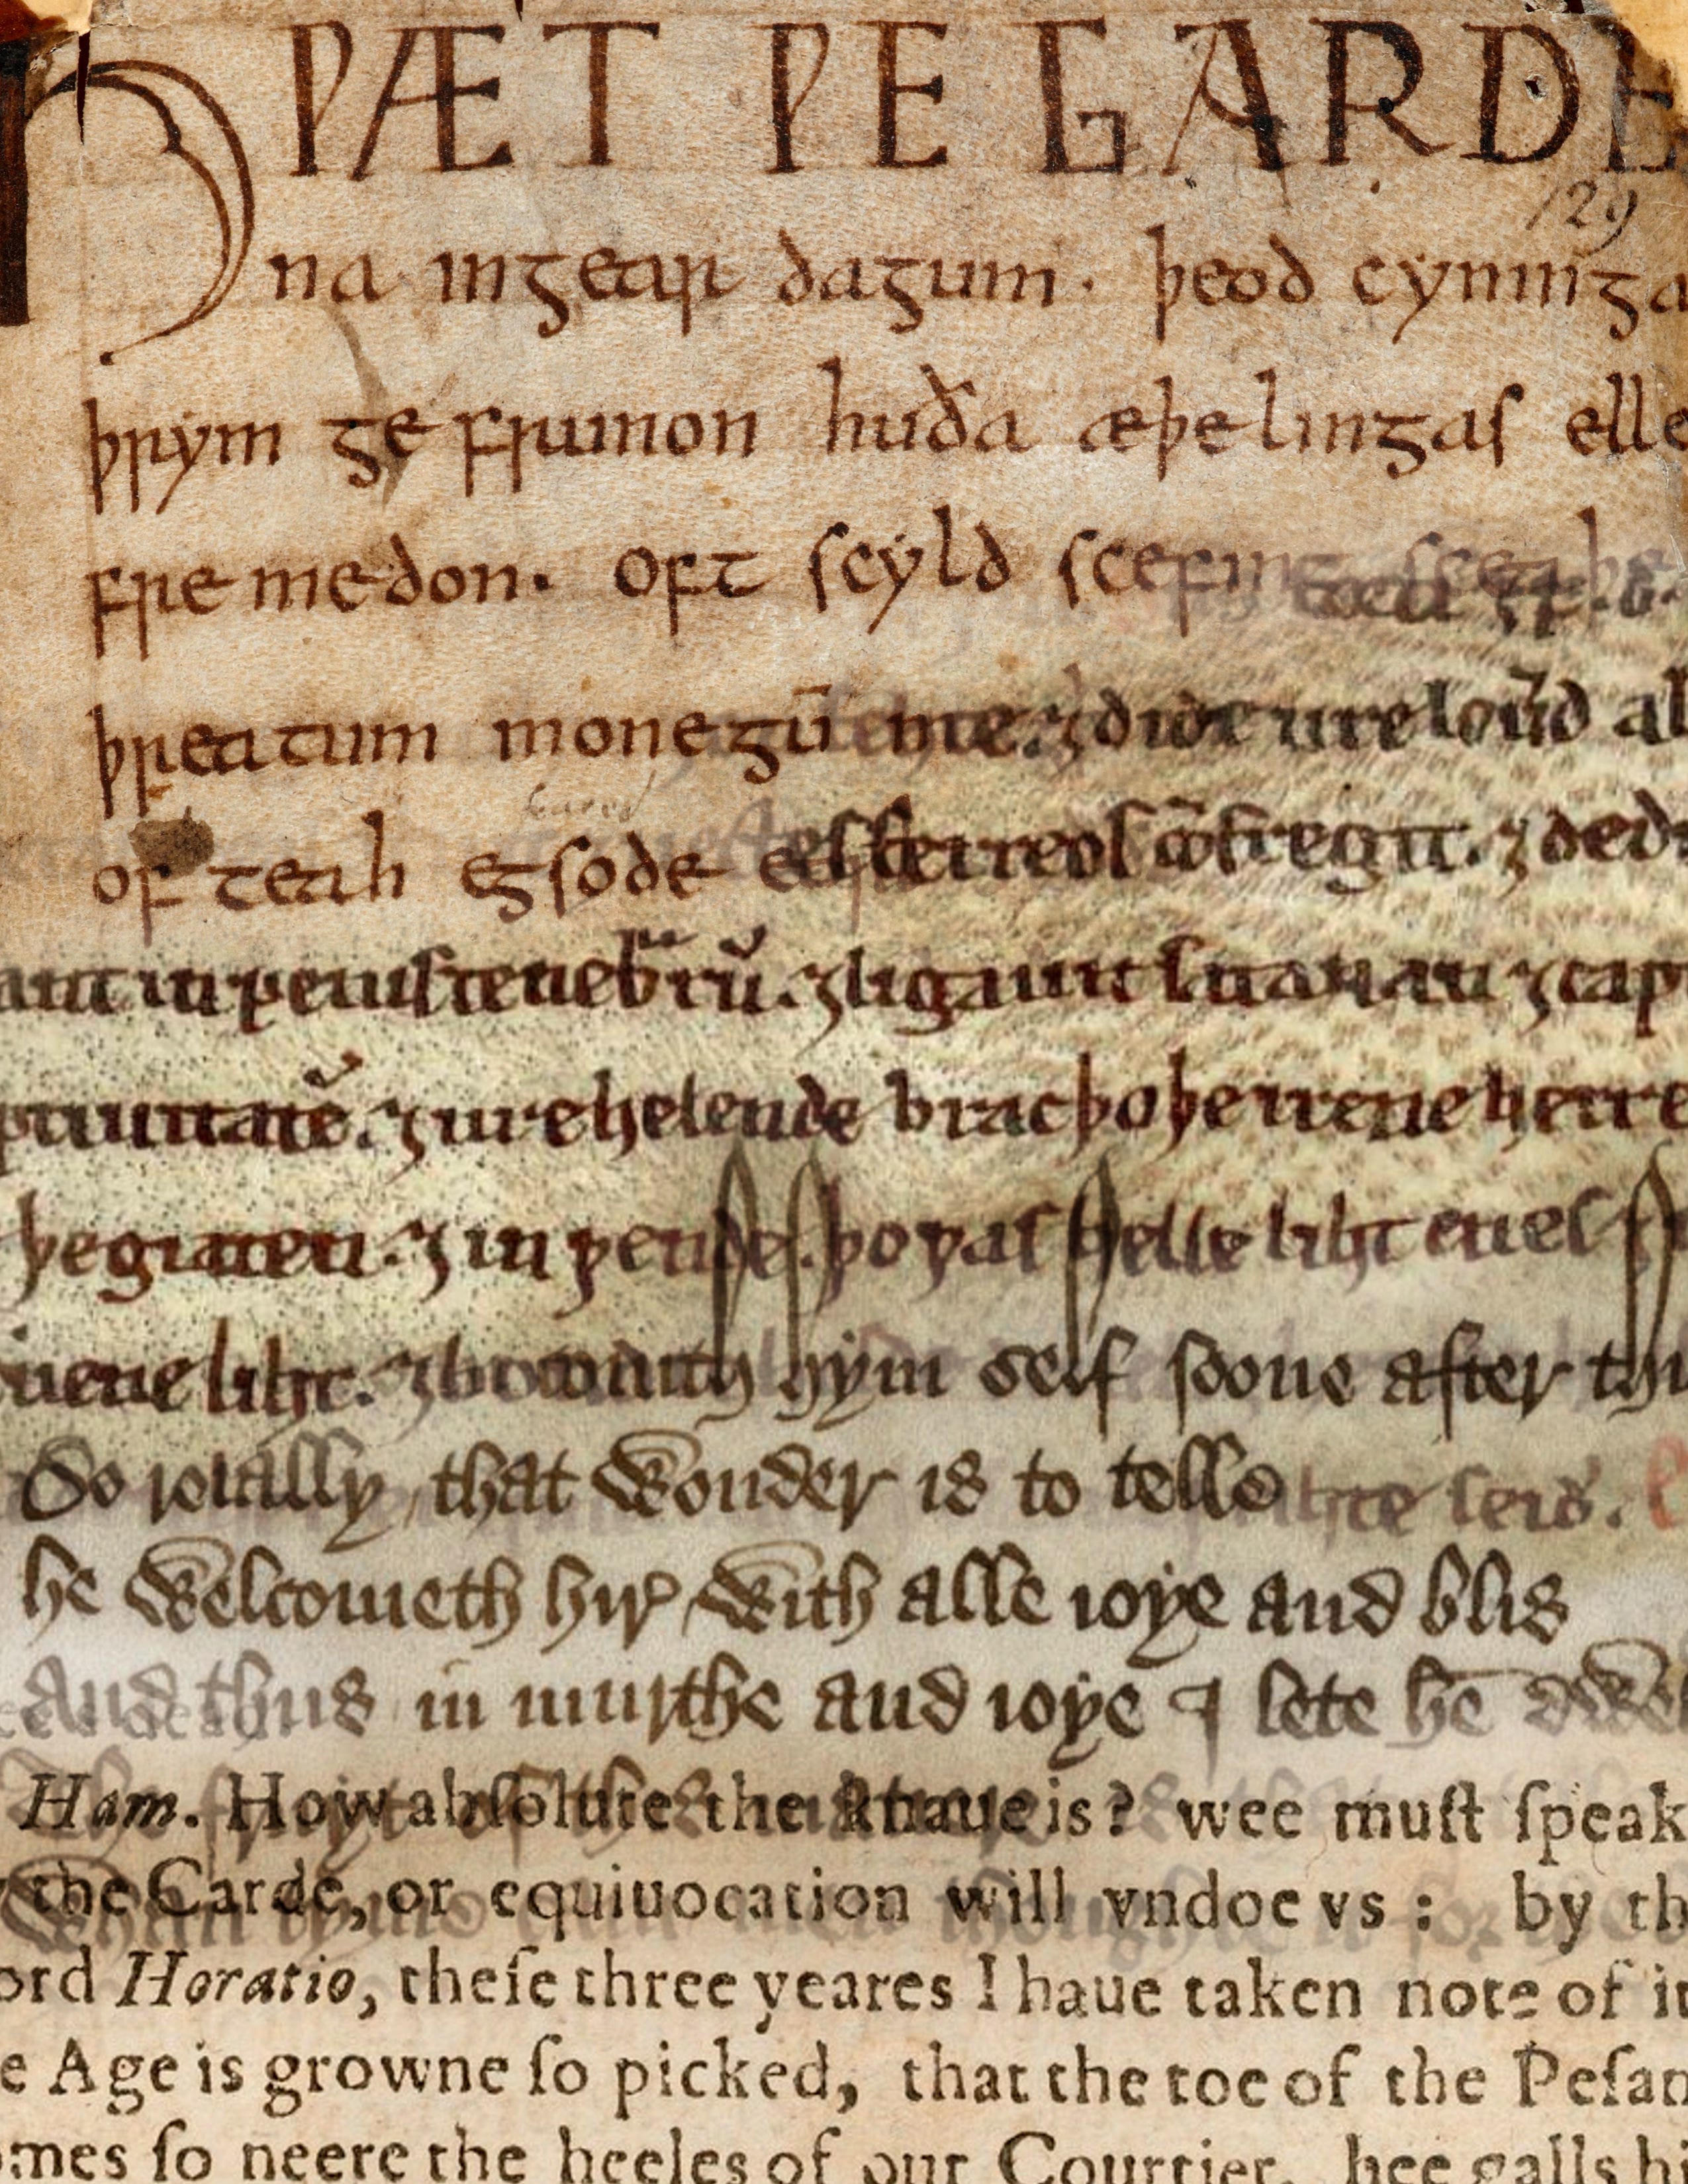 HǷÆT ǷE GARDE
129
na ingear dagum. þeod cyninga
þrym ge frunon huða æþelingas elle
fremedon. oft scyld scefing
þreatum monegū ure louerd al
of teah egsode ferreos cōfregit. ⁊ ded
in penis tenebrarū. ⁊ ligauit satanan ⁊ cap
⁊ ure helende brac þo þe irene herre
þe giaten. ⁊ in ƿende. þo ƿas helle liht
liht. ⁊ hym self soone after
So roially, that wonder is to telle
he welcometh hir with alle ioye and blis
And thus in murthe and ioye I lete hē dwel
Ham. How abſolute the knaue is? wee muſt ſpeak
the Carde, or equiuocation will vndoe vs: by th
ord Horatio, theſe three yeares I haue taken note of it
e Age is growne ſo picked, that the toe of the Peſan
omes ſo neere the heeles of our Courtier, hee galls hi